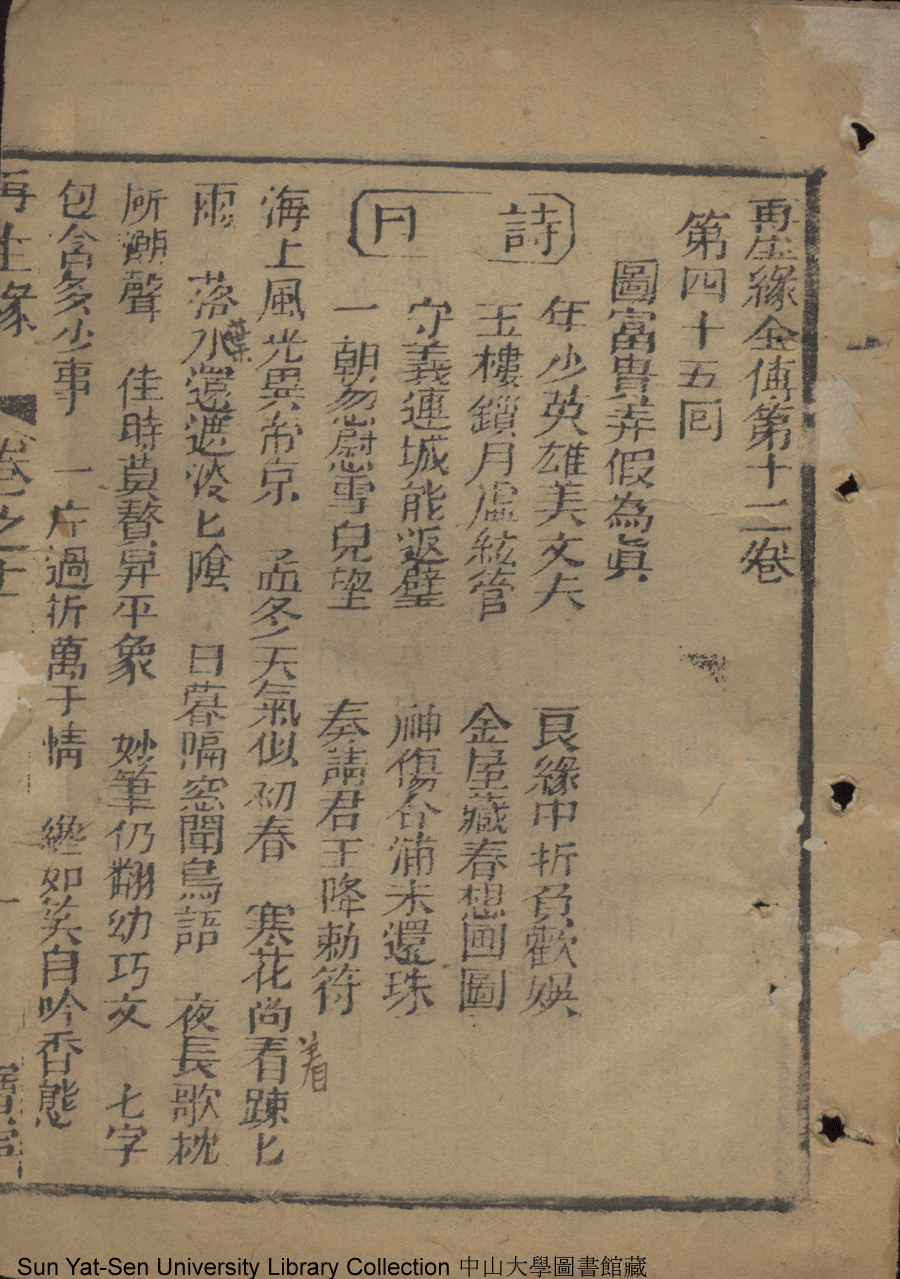 再生緣全傳第十二卷
第四十五回
圖富貴弄假為真
詩曰
年少英雄美丈夫 良緣中折負歡娛
玉樓鎖月虛絃管 金屋藏春想画圖
守義連城能返璧 神傷合浦未還珠
一朝勿慰雪兒望 奏請君王降勅符
海上風光異帝京 孟冬天氣似初春 寒花尚看踈匕
着
雨 落水還遮淡匕陰 日暮隔窓聞鳥語 夜長歌枕
葉
所潮聲 佳時莫贅昇平象 妙筆仍翻幼巧文 七字
包含多少事 一片過折萬于情 纔如笑自吟香態
再生緣 卷之十 一
Sun Yat-Sen University Library Collection 中山大學圖書館藏